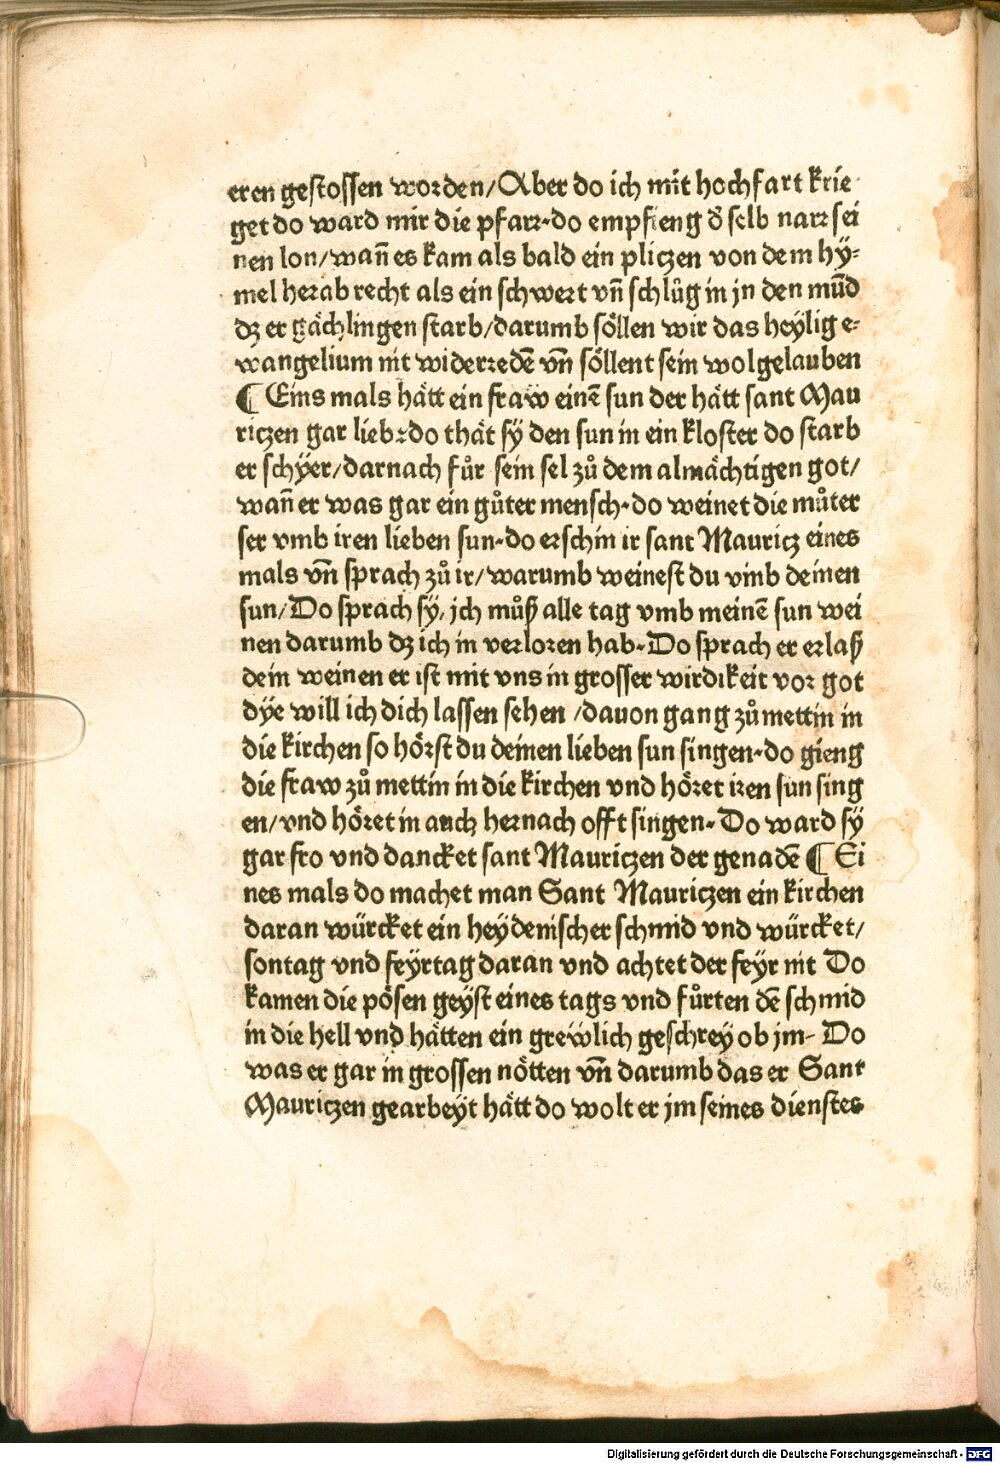 eren gestossen worden/Aber do ich mit hochfart krie
get do ward mir die pfarr·do empfieng d̄ selb narr sei
nen lon/wañ es kam als bald ein pliczen von dem hÿ⸗
mel herab recht als ein schwert vñ schlůg in jn den mūd
dz er gächlingen starb/darumb söllen wir das heylig e⸗
wangelium nit widerredē vñ söllent sein wol gelauben
¶ Eins mals hätt ein fraw einē sun der hätt sant Mau
riczen gar lieb·do thät sÿ den sun in ein kloster do starb
er schÿer/darnach fůr sein sel zů dem almächtigen got/
wañ er was gar ein gůter mensch·do weinet die můter
ser vmb iren lieben sun·do erschin ir sant Mauricz eines
mals vñ sprach zů ir/warumb weinest du vmb deinen
sun/Do sprach sÿ/jch můß alle tag vmb meinē sun wei
nen darumb dz ich in verloren hab·Do sprach er erlaß
dein weinen er ist mit vns in grosser wirdikeit vor got
dÿe will ich dich lassen sehen /dauon gang zů mettin in
die kirchen so hörst du deinen lieben sun singen·do gieng
die fraw zů mettin in die kirchen vnd höret iren sun sing
en/vnd höret in auch hernach offt singen·Do ward sÿ
gar fro vnd dancket sant Mauriczen der genadē ¶ Ei
nes mals do machet man Sant Mauriczen ein kirchen
daran würcket ein heÿdenischer schmid vnd würcket/
sontag vnd feÿrtag daran vnd achtet der feÿr nit Do
kamen die pösen geÿst eines tags vnd fůrten dē schmid
in die hell vnd hätten ein grewlich geschreÿ ob jm· Do
was er gar in grossen nötten vñ darumb das er Sant
Mauriczen gearbeÿt hätt do wolt er jm seines dienstes
Digitalisierung gefördert durch die Deutsche Forschungsgemeinschaft - DFG